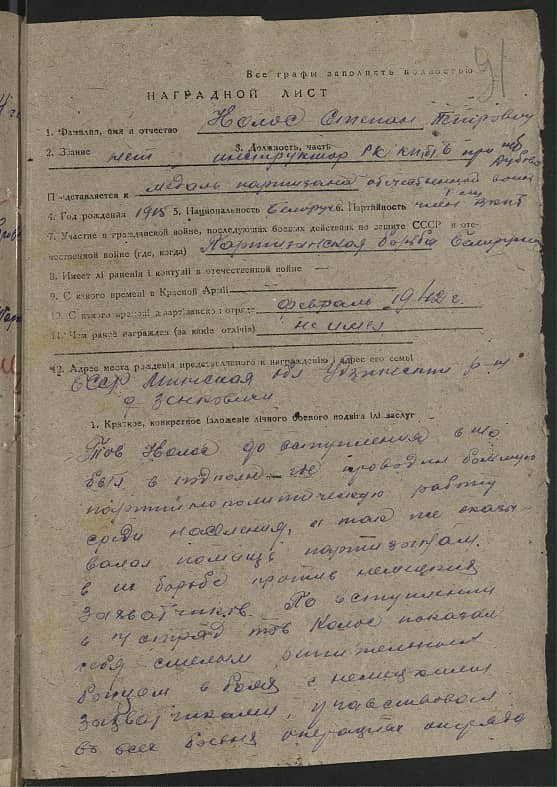 91
Все графы заполнять полностью
НАГРАДНОЙ ЛИСТ
1. Фамилия, имя и отчество Колос Степан
2. Звание нет 3. Должность, часть инструктор РК КП(б)Б
Представляется к медаль партизана отечественной войны
4. Год рождения 1915 5. Национальность белорус 6. Партийность член
7. Участие в гражданской войне, последующих боевых действиях по защите СССР и оте-
чественной войне (где, когда) Партизанская борьба Белоруссия
8. Имеет лі раненія і контузіі в отечественной войне —
9. С какого времені в Красной Арміі —
10. С какого времені в партизанском отряде февраль 1942 г.
11. Чем ранее награжден (за какіе отлічія) не имел
12. Адрес места рожденія представляемого к награжденію і адрес его семьі
БССР Минская обл Узденский р-н
д Зеньковичи
1. Краткое, конкретное ізложеніе лічного боевого подвіга ілі заслуг
Тов Колос до вступления в п/о
был в подполье где проводил большую
партийно политическую работу
среди населения, а так же оказы-
вал помощь партизанам.
в их борьбе против немецких
захватчиков. По вступлении
в п/отряд тов Колос показал
себя смелым решительным
бойцом в боях с немецкими
захватчиками, участвовал
во всех боевых операциях отряда